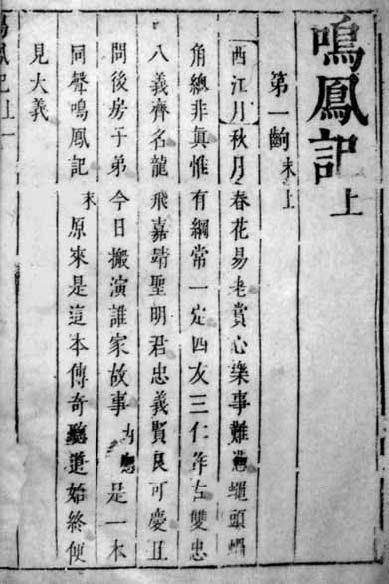 鳴鳳記 上
第一齣 末上
西江月 秋月春花易老賞心樂事難憑蠅頭蝸
角總非真惟有綱常一定四友三仁作古雙忠
八義齊名龍飛嘉靖聖明君忠義賢良可慶且
問後房子弟今日搬演誰家故事 內應 是一本
同聲鳴鳳記 末 原來是這本傳奇聽道始終便
見大義
鳳記上一